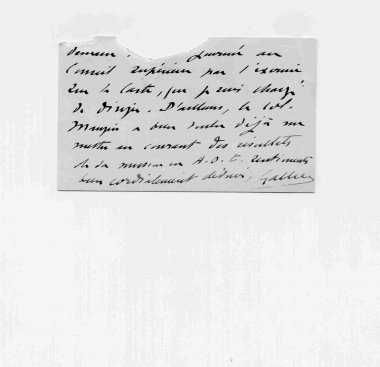 demain. journée au
Conseil supérieur par l'exercice
sur la carte, que je suis chargé
de diriger. D'ailleurs, le Col.
Mangin a bien voulu déjà me
mettre au courant des résultats
de sa mission en A.O.F. Sentiments
bien cordialement dévoués, Gallieni